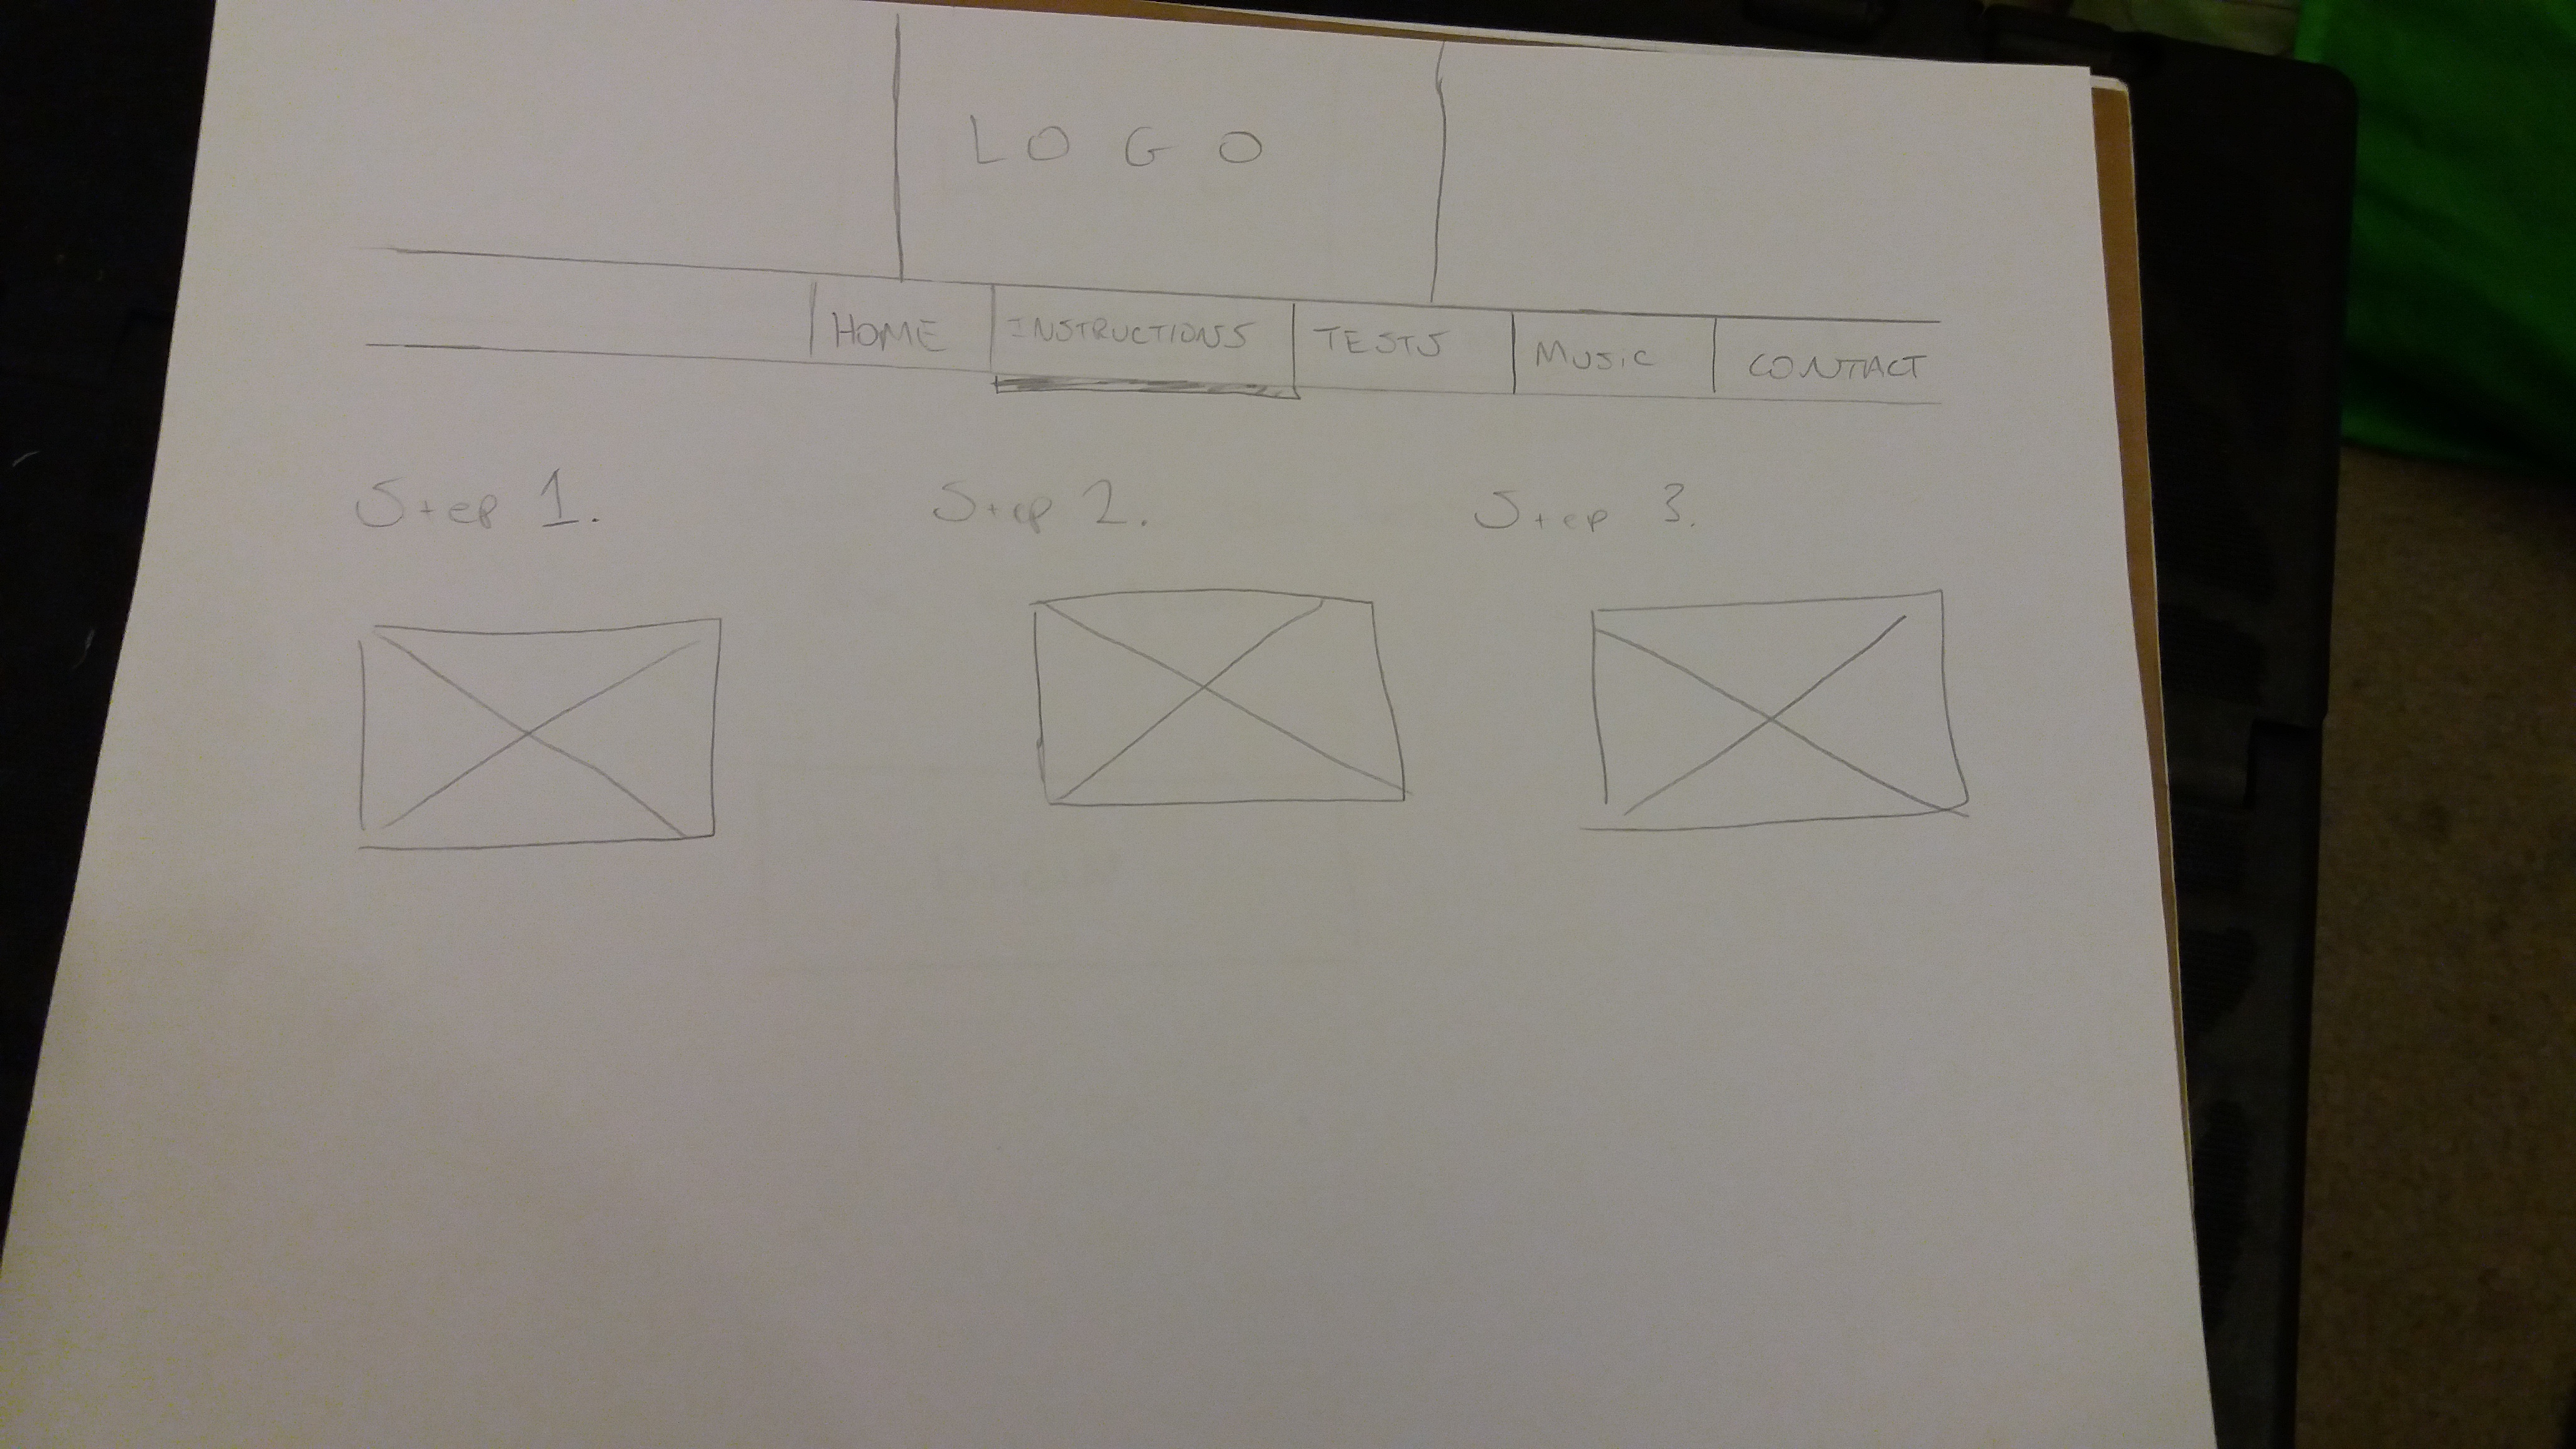 LOGO
HOME INSTRUCTIONS TESTS MUSIC CONTACT
Step 1. Step 2. Step 3.